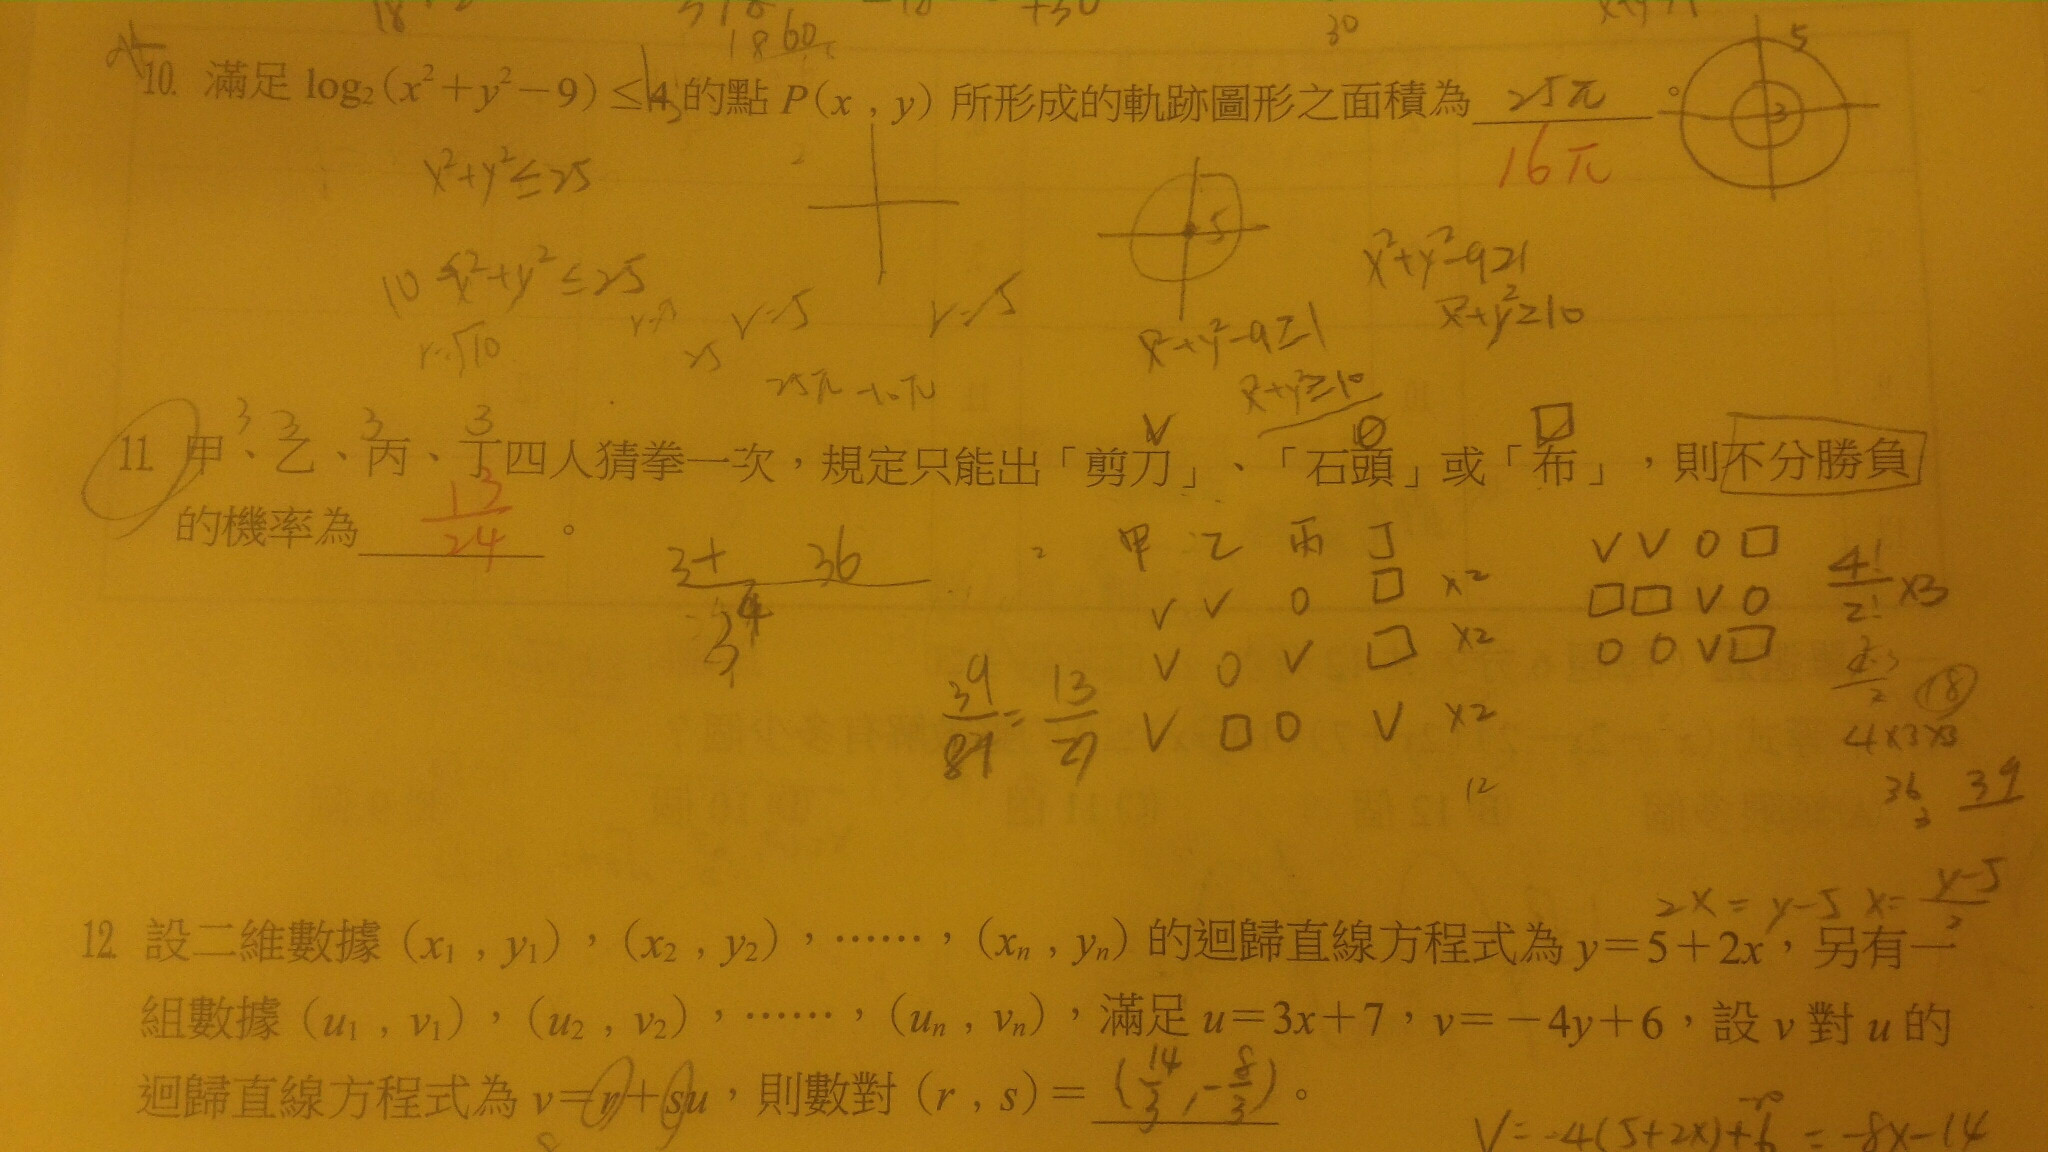 10. 滿足 log₂(x²+y²−9)≤4 的點 P(x , y) 所形成的軌跡圖形之面積為 25π 。
16π
5
3
x²+y²≤25
10≤x²+y²≤25
r=√10
r=5
r=5
5
25π-10π
x²+y²-9≥1
x²+y²≥10
x²+y²-9≥1
x²+y²≥10
3 3 3 3
11. 甲、乙、丙、丁四人猜拳一次,規定只能出「剪刀」、「石頭」或「布」,則不分勝負
的機率為 13/24 。
3+ 36
3⁴
甲 乙 丙 丁
V V O □ ×2
V O V □ ×2
V □ O V ×2
12
39/81=13/27
V V O □
□ □ V O
O O V □
4!/2! ×3
18
4×3×3
36
3
39
2x=y-5 x=(y-5)/2
12. 設二維數據 (x₁ , y₁),(x₂ , y₂),……,(xₙ , yₙ) 的迴歸直線方程式為 y=5+2x,另有一
組數據 (u₁ , v₁),(u₂ , v₂),……,(uₙ , vₙ),滿足 u=3x+7,v=−4y+6,設 v 對 u 的
迴歸直線方程式為 v=r+su,則數對 (r , s)= (14/3, -8/3) 。
V=-4(5+2x)+6 = -8x-14